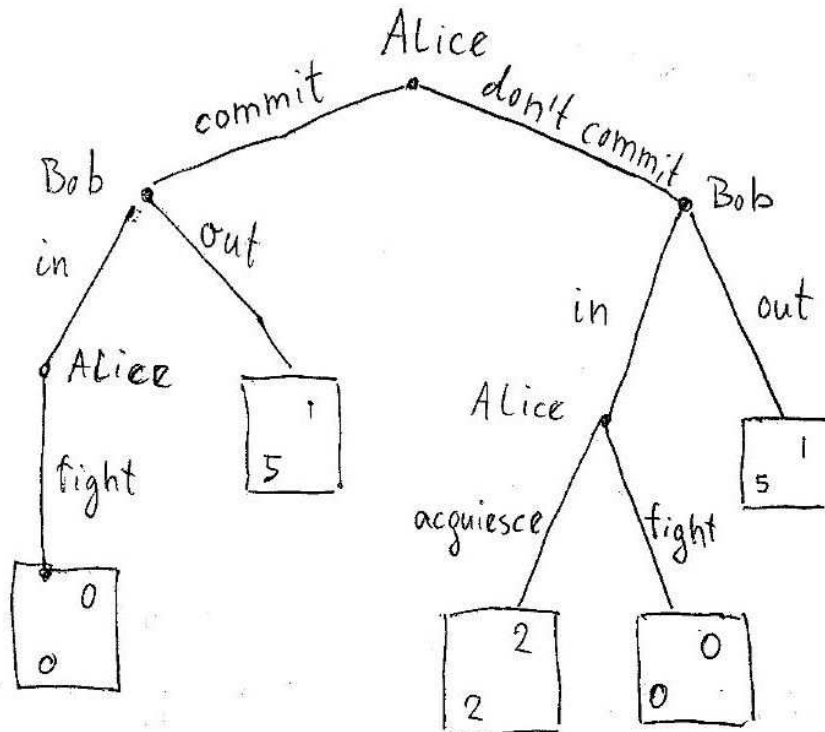 Alice
commit
don't commit
Bob
Bob
in
out
in
out
Alice
Alice
1
5
1
5
fight
acquiesce
fight
0
0
2
2
0
0